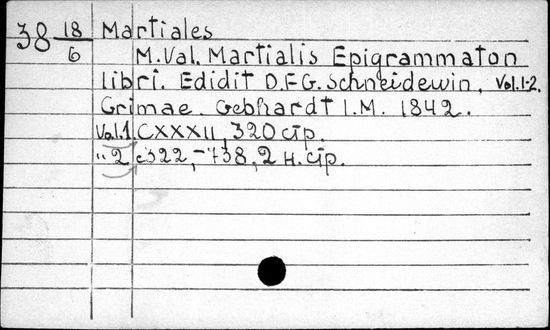 38 18/6 Martiales
M.Val. Martialis Epigrammaton
libri. Edidit D.F G. Schneidewin. Vol.1-2.
Grimae. Gebhardt I.M. 1842.
Vol.1 CXXXII, 320 cтp.
" 2 c322,-738, 2 н. cтp.